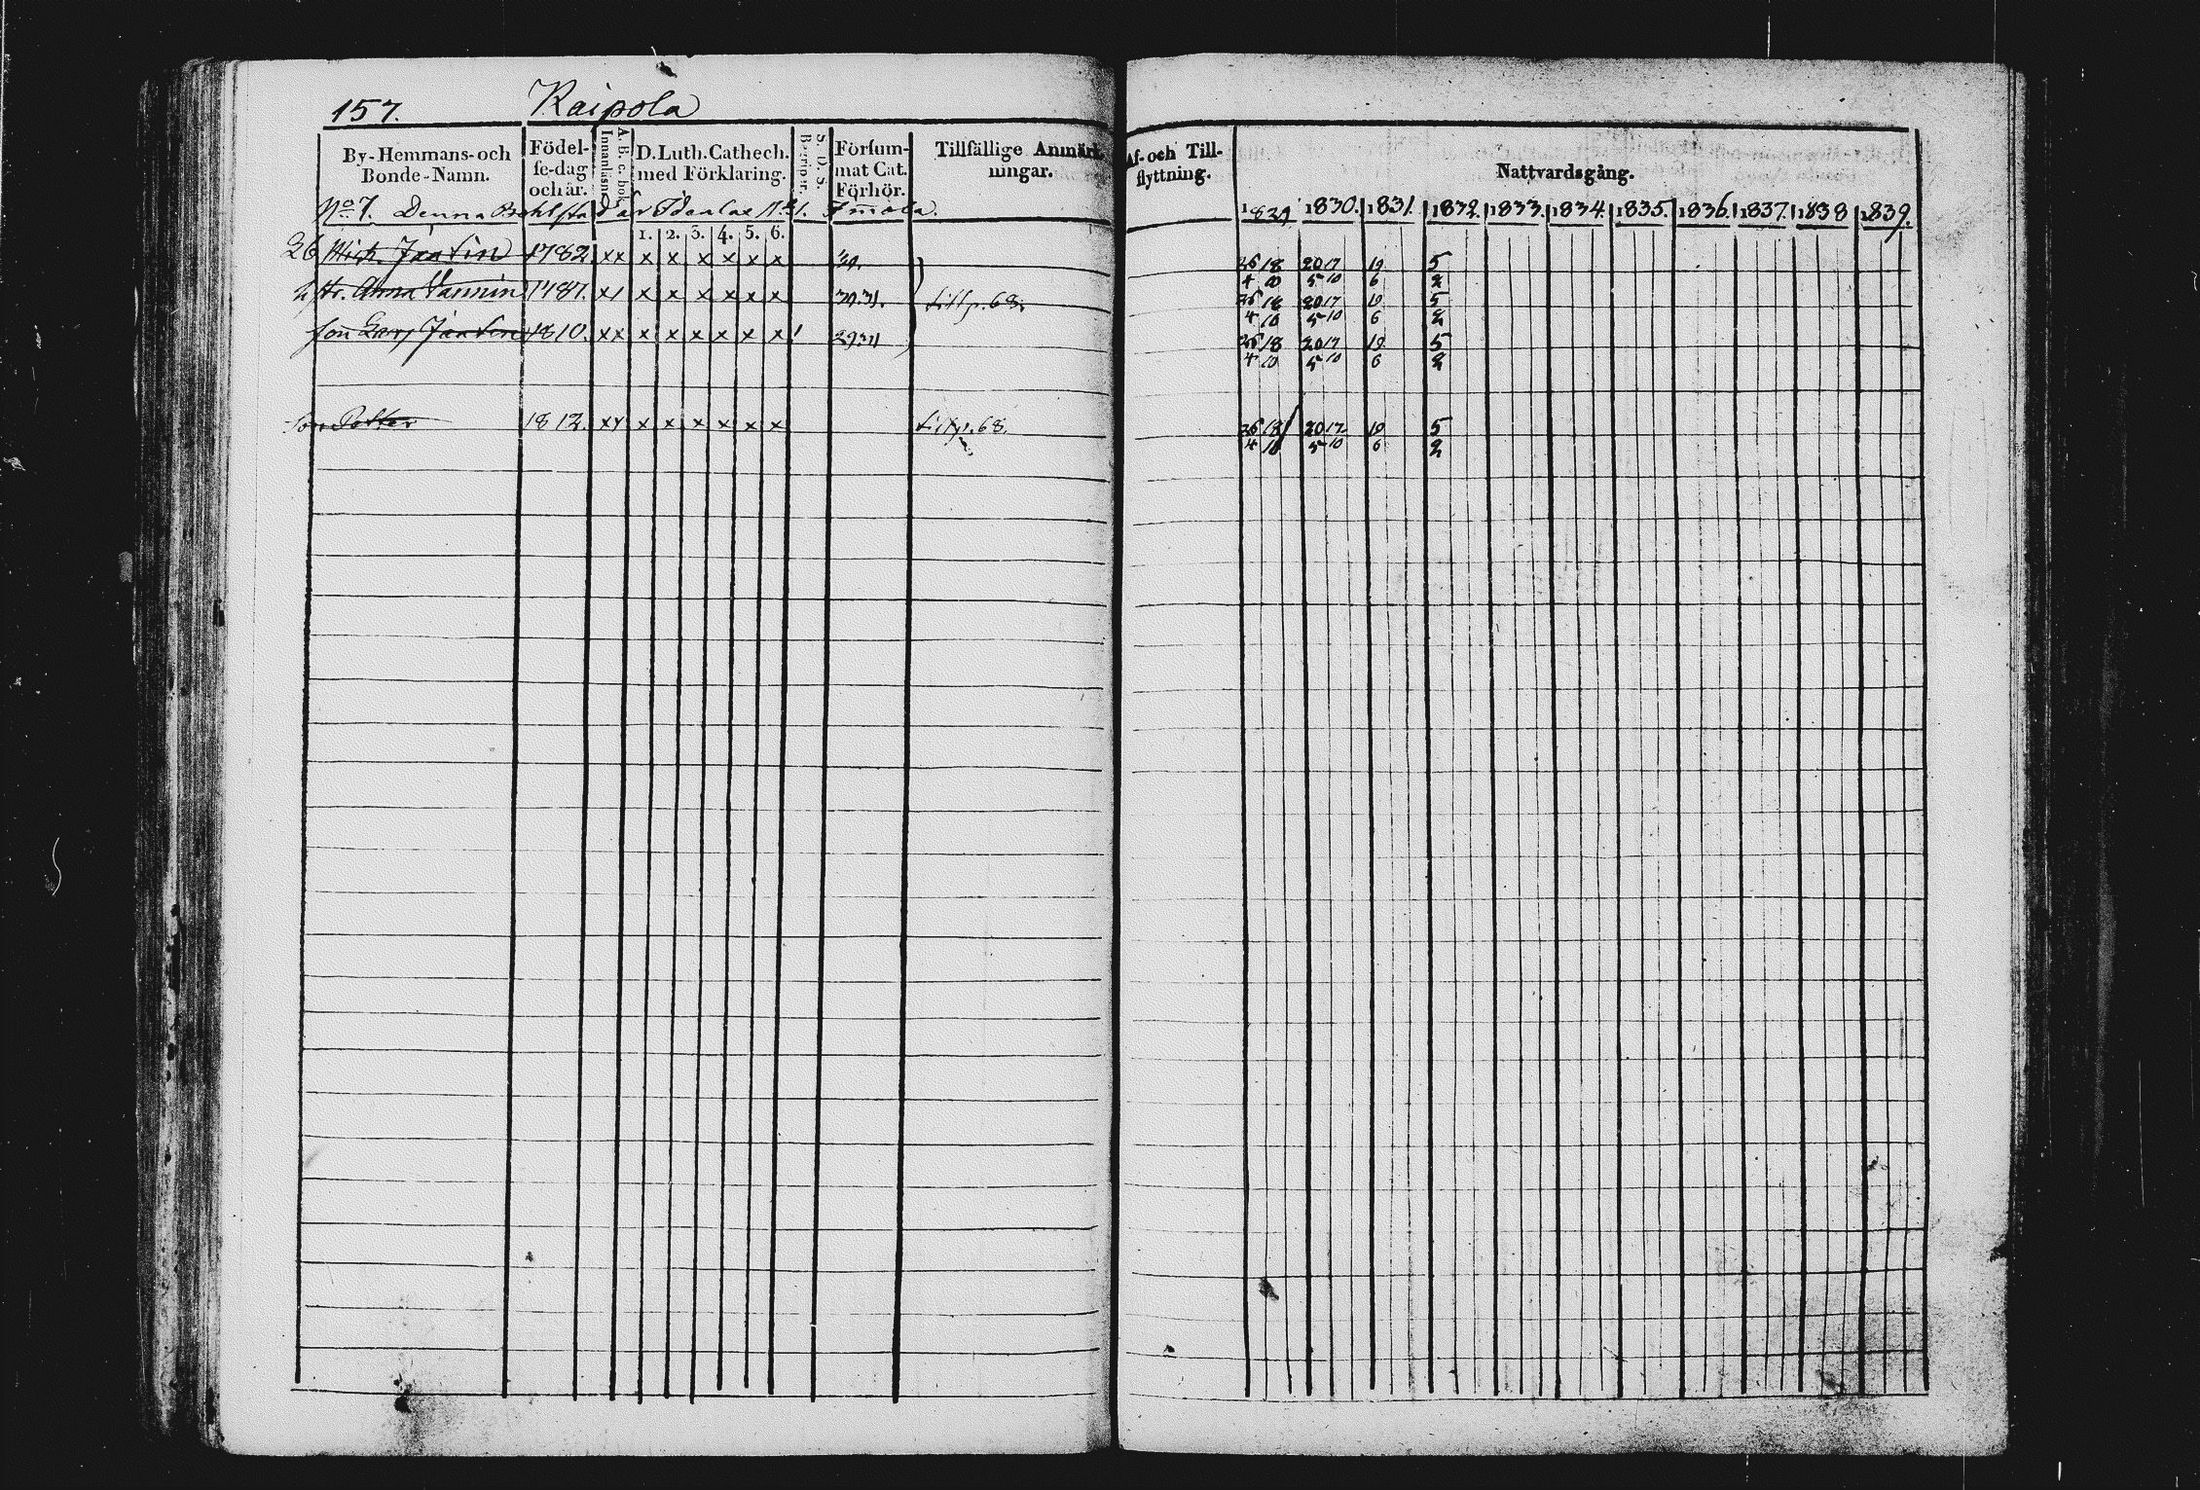 157. Kaipola
By-Hemmans-och Bonde-Namn.
Födel-se-dag och år.
A B c bok. Innanläsn.
D. Luth. Cathech. med Förklaring.
S. D. S. Begriper.
Försum-mat Cat. Förhör.
Tillfällige Anmärk-ningar.
Af- och Till-flyttning.
Nattvardsgång.
No 7. Denna
1. 2. 3. 4. 5. 6.
1829 1830. 1831. 1832. 1833. 1834. 1835. 1836. 1837. 1838 1839.
26 Mich. 1782. xx x x x x x x 26 18 20 17 19 5
4 10 5 10 6 2
Anna 1787. x x x x x x 26 18 20 17 19 5
4 10 5 10 6 2
till p. 68.
1810. xx x x x x x x 26 18 20 17 19 5
4 10 5 10 6 2
Son Petter 1812. xx x x x x x x till p. 68. 26 18 20 17 19 5
4 10 5 10 6 2